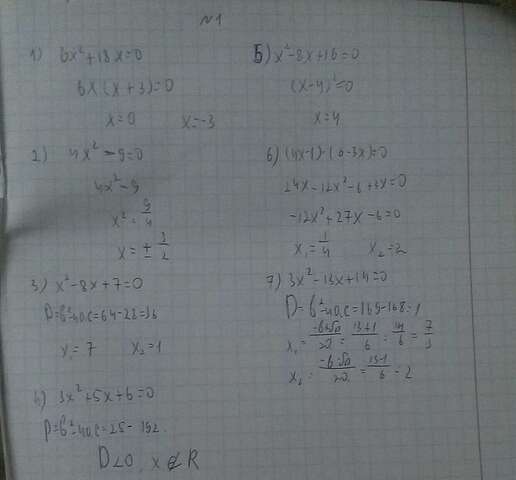 №1
1) 6x²+18x=0
6x(x+3)=0
x=0 x=-3
2) 4x²-9=0
4x²-9
x²=9/4
x=±3/2
3) x²-8x+7=0
D=b²-4ac=64-28=36
x=7 x₂=1
4) 3x²+5x+6=0
D=b²-4ac=25-
D<0, x∉R
5) x²-8x+16=0
(x-4)²=0
x=4
6) (4x-1)·(6-3x)=0
24x-12x²-6+3x=0
-12x²+27x-6=0
x₁=1/4 x₂=2
7) 3x²-13x+14=0
D=b²-4ac=169-168=1
x₁=(-b+√D)/2a=(13+1)/6=14/6=7/3
x₂=(-b-√D)/2a=(13-1)/6=2